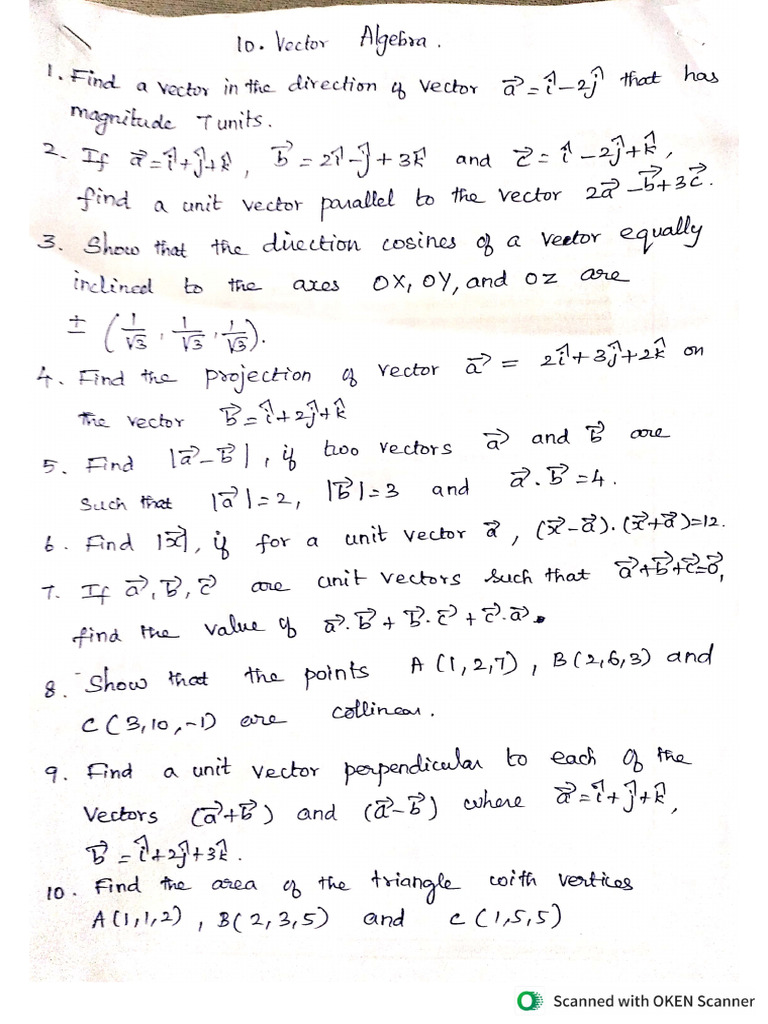 10. Vector Algebra.
1. Find a vector in the direction of vector a⃗ = î – 2ĵ that has
magnitude 7 units.
2. If a⃗ = î + ĵ + k̂, b⃗ = 2î – ĵ + 3k̂ and c⃗ = î – 2ĵ + k̂,
find a unit vector parallel to the vector 2a⃗ – b⃗ + 3c⃗.
3. Show that the direction cosines of a vector equally
inclined to the axes OX, OY, and OZ are
± (1/√3, 1/√3, 1/√3).
4. Find the projection of vector a⃗ = 2î + 3ĵ + 2k̂ on
the vector b⃗ = î + 2ĵ + k̂
5. Find |a⃗ – b⃗|, if two vectors a⃗ and b⃗ are
such that |a⃗| = 2, |b⃗| = 3 and a⃗. b⃗ = 4.
6. Find |x⃗|, if for a unit vector a⃗, (x⃗ – a⃗). (x⃗ + a⃗) = 12.
7. If a⃗, b⃗, c⃗ are unit vectors such that a⃗ + b⃗ + c⃗ = 0⃗,
find the value of a⃗. b⃗ + b⃗. c⃗ + c⃗. a⃗.
8. Show that the points A (1, 2, 7), B (2, 6, 3) and
C (3, 10, –1) are collinear.
9. Find a unit vector perpendicular to each of the
vectors (a⃗ + b⃗) and (a⃗ – b⃗) where a⃗ = î + ĵ + k̂,
b⃗ = î + 2ĵ + 3k̂.
10. Find the area of the triangle with vertices
A (1, 1, 2), B (2, 3, 5) and C (1, 5, 5)
Scanned with OKEN Scanner